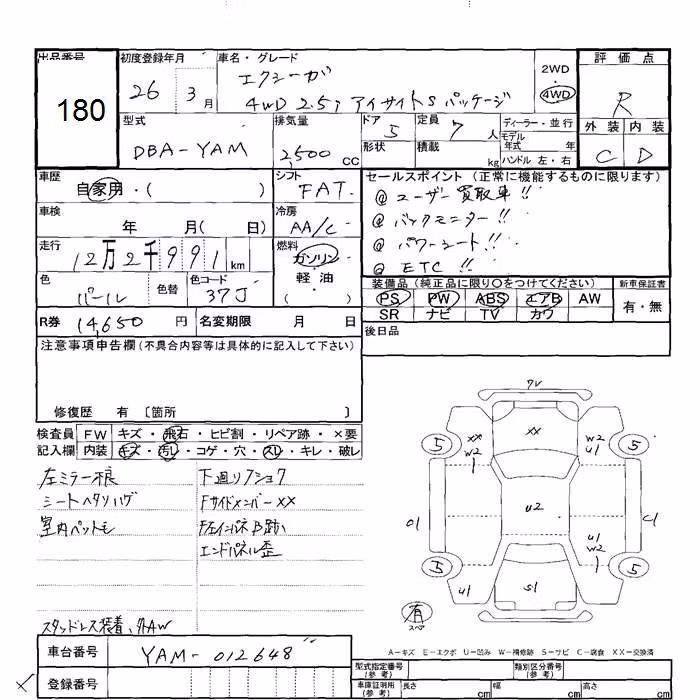 出品番号
180
初度登録年月
26 3月
車名・グレード
エクシーガ
4WD 2.5i アイサイトS パッケージ
2WD
4WD
評価点
R
外装 内装
C D
型式
DBA-YAM
排気量
2,500 cc
ドア 5
形状
定員 7 人
積載 kg
ディーラー・並行
モデル年式 年
ハンドル 左・右
車歴
自家用・( )
シフト
FAT
セールスポイント (正常に機能するものに限ります)
@ ユーザー買取車!!
@ バックモニター!!
@ パワーシート!!
@ ETC !!
車検
年 月( 日)
冷房
AA/C
走行
12万2千991 km
燃料
ガソリン
軽油
( )
色
パール
色替
色コード
37J
装備品 (純正品に限り○をつけてください)
新車保証書
PS PW ABS エアB AW
SR ナビ TV カワ
有・無
R券 14,650 円
名変期限 月 日
後日品
注意事項申告欄(不具合内容等は具体的に記入して下さい)
修復歴 有 〔箇所 〕
検査員 FW キズ・飛石・ヒビ割・リペア跡・×要
記入欄 内装 キズ・汚レ・コゲ・穴・スレ・キレ・破レ
左ミラー不良 下廻リフショク
シートヘタリ FサイドメンバーXX
室内ペット毛
エンドパネル歪
スタッドレス装着、外AW
車台番号 YAM-012648
登録番号
XX
W2
5
U2
W2
U1
5
U2
U1
W2
1
5
5
U1
S1
有
スペア
A-キズ E-エクボ U-凹み W-補修跡 S-サビ C-腐食 XX-交換済
型式指定番号
(参考)
類別区分番号
(参考)
車庫証明用
(参考)
長さ cm 幅 cm 高さ cm